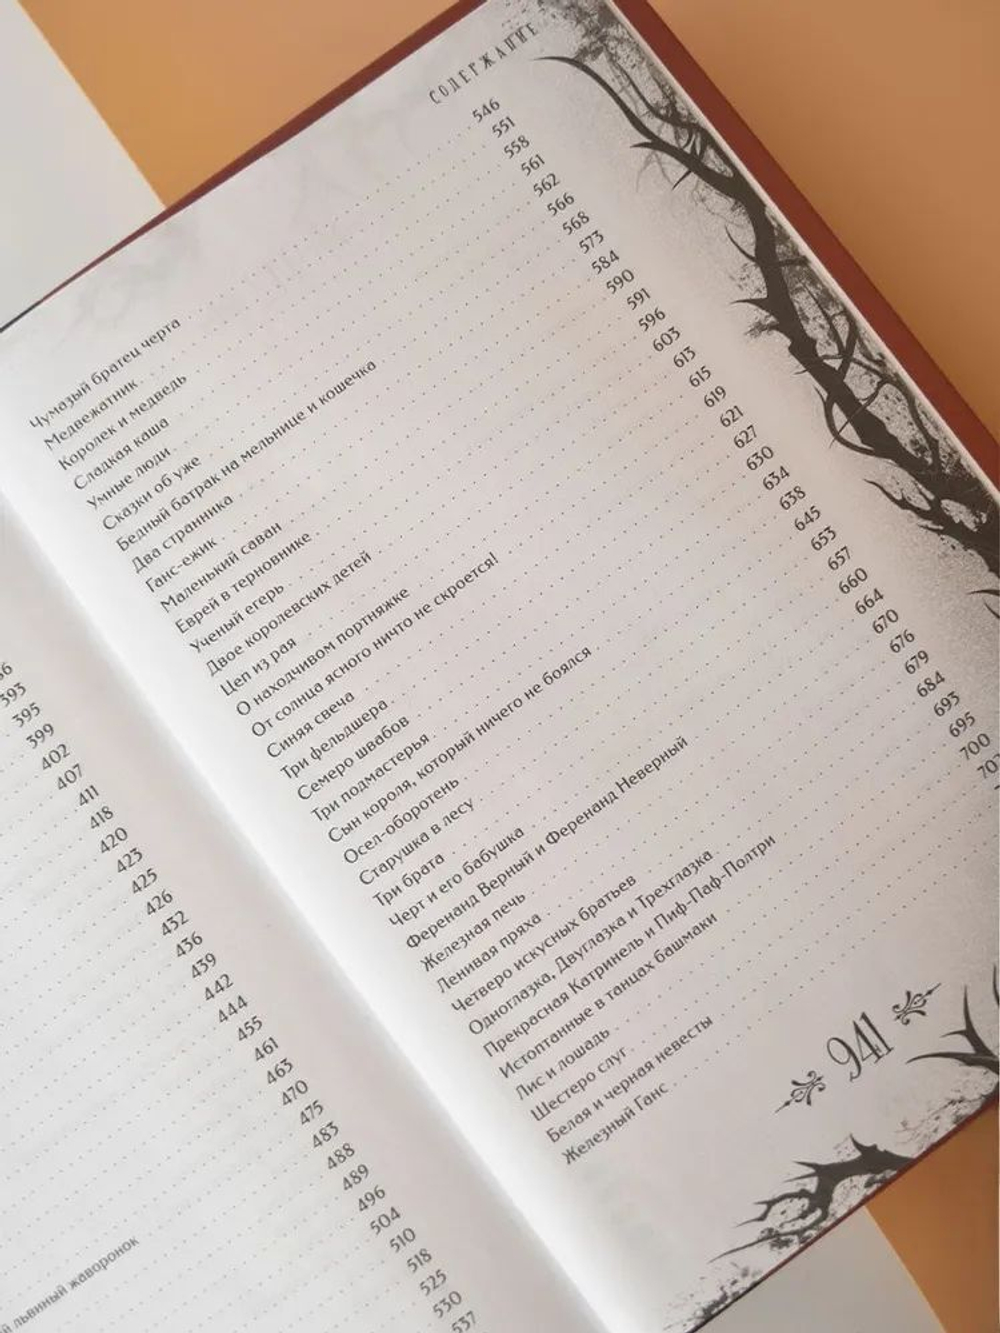 СОДЕРЖАНИЕ
Чумазый братец черта 546
Медвежатник 551
Королек и медведь 558
Сладкая каша 561
Умные люди 562
Сказки об уже 566
Бедный батрак на мельнице и кошечка 568
Два странника 573
Ганс-ежик 584
Маленький саван 590
Еврей в терновнике 591
Ученый егерь 596
Двое королевских детей 603
Цеп из рая 613
О находчивом портняжке 615
От солнца ясного ничто не скроется! 619
Синяя свеча 621
Три фельдшера 627
Семеро швабов 630
Три подмастерья 634
Сын короля, который ничего не боялся 638
Осел-оборотень 645
Старушка в лесу 653
Три брата 657
Черт и его бабушка 660
Ференанд Верный и Ференанд Неверный 664
Железная печь 670
Ленивая пряха 676
Четверо искусных братьев 679
Одноглазка, Двуглазка и Трехглазка 684
Прекрасная Катринель и Пиф-Паф-Полтри 693
Истоптанные в танцах башмаки 695
Лис и лошадь 700
Шестеро слуг
Белая и черная невесты
Железный Ганс
941
393
395
399
402
407
411
418
420
423
425
426
432
436
439
442
444
455
461
463
470
475
483
488
489
496
504
510
518
львиный жаворонок 525
530
537